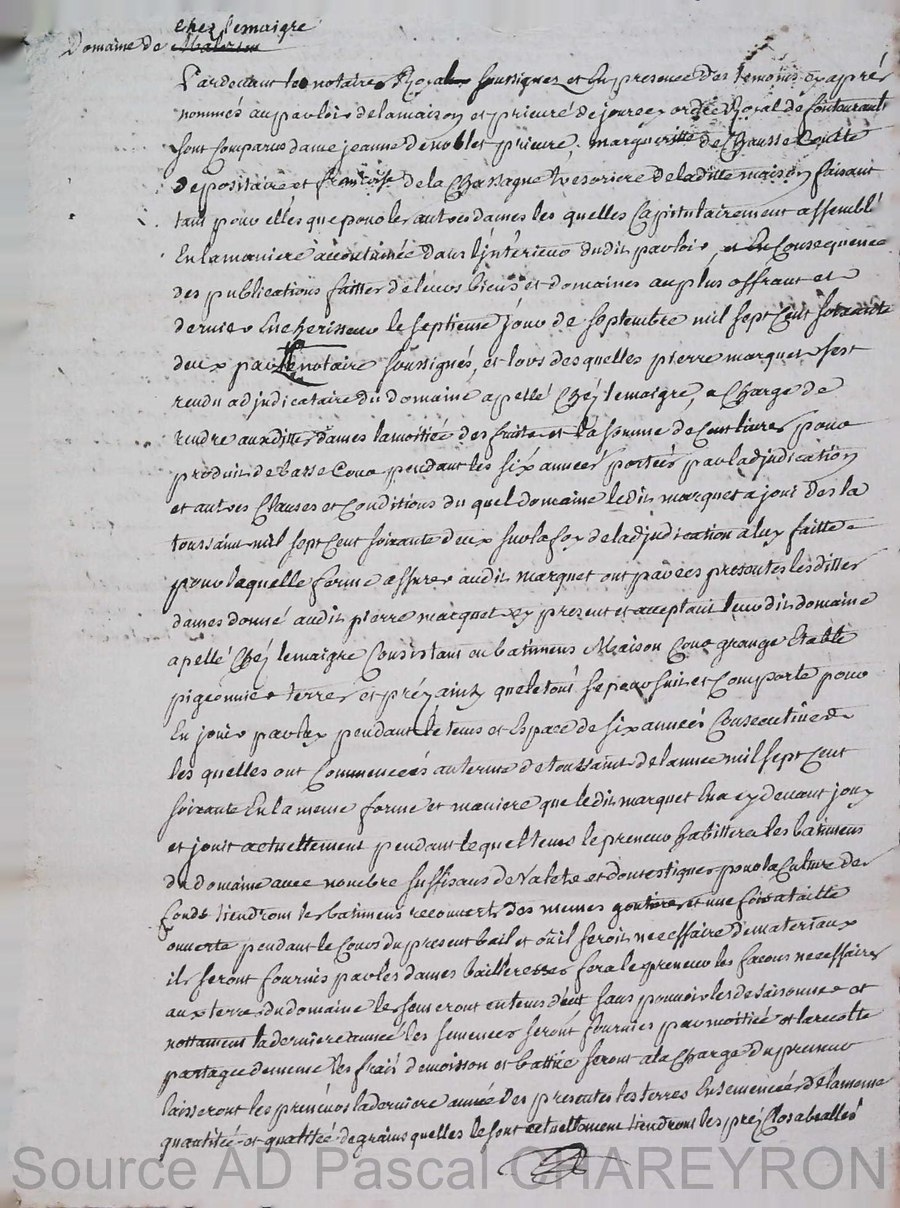 chez lemaigre
Domaine de
Pardevant les notaires Royal soussignés et En presence des temoins cy aprés
nommés au parloir de la maison et prieuré de jourcey ordre Royal de fontevrault
sont Comparus dame jeanne de noblet prieure, margueritte de Chausse Courte
depositaire et francoise de la Chassagne tresoriere de la ditte maison faisant
tant pour elles que pour les autres dames les quelles Capitulairement assemblé
En la maniere accoutumée dans l'jnterieur dudit parloir, et En Consequence
des publications faittes de leurs biens et domaines au plus offrant et
dernier Encherisseur le septieme jour de septembre mil sept Cent soixante
deux par Le notaire soussignés, et lors desquelles pierre marquet sest
rendu adjudicataire du domaine apellé Chéz lemaigre, a Charge de
rendre auxdittes dames la moitiée des fruits et la somme de Cent livres pour
produit de basse Cour pendant les six années portées par l'adjudication
et autres Clauses et Conditions du quel domaine ledit marquet a joui des la
toussaint mil sept Cent soixante deux sur la foy de l'adjudication a luy faitte
pour laquelle ferme assurer audit marquet ont par ces presentes lesdittes
dames donné audit pierre marquet cy present et acceptant leur dit domaine
apellé Chéz lemaigre Consistant en batimens Maison Cour grange Etable
pigeonnier terres et préz ainsy que le tout se poursuit et Comporte pour
En jouir par luy pendant le tems et Espace de six années Consecutives
les quelles ont Commencées au terme de toussaint de l'année mil sept Cent
soixante En la meme forme et maniere que ledit marquet En a cy devant jouy
et jouit actuellement pendant lequel tems le preneur habittera les batimens
du domaine avec nombre suffisans de valets et domestiques pour la Culture des
fonds tiendront les batimens recouverts des memes goutieres et une fois a taille
ouverte pendant le Cours du present bail et ou il seroit necessaire de materiaux
ils seront fournis par les dames bailleresses fera le preneur les facons necessaires
aux terres du domaine les semeront en tems deut sans pouvoir les desaisonner et
nottament la derniere année les semences seront fournies par moitiée et la recolte
partagée de meme les frais de moisson et battue seront a la Charge du preneur
laisseront les preneurs la derniere année des presentes les terres Ensemencées de la meme
quantitée et qualitée de grains quelles le sont actuellement tiendront les préz Clos abealles
Source AD Pascal CHAREYRON